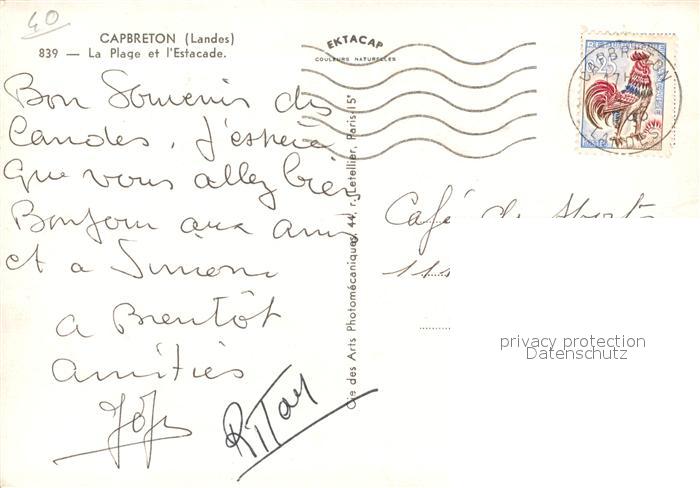 40
CAPBRETON (Landes)
839 — La Plage et l'Estacade.
EKTACAP
COULEURS NATURELLES
Bon Souvenir des
Landes. J'espère
que vous allez bien
Bonjour aux amis
et a Simone
a Bientôt
amitiés
Cie des Arts Photomécaniques, 44, r. Letellier, Paris-15e
CAPBRETON
LANDES
Café de
privacy protection
Datenschutz